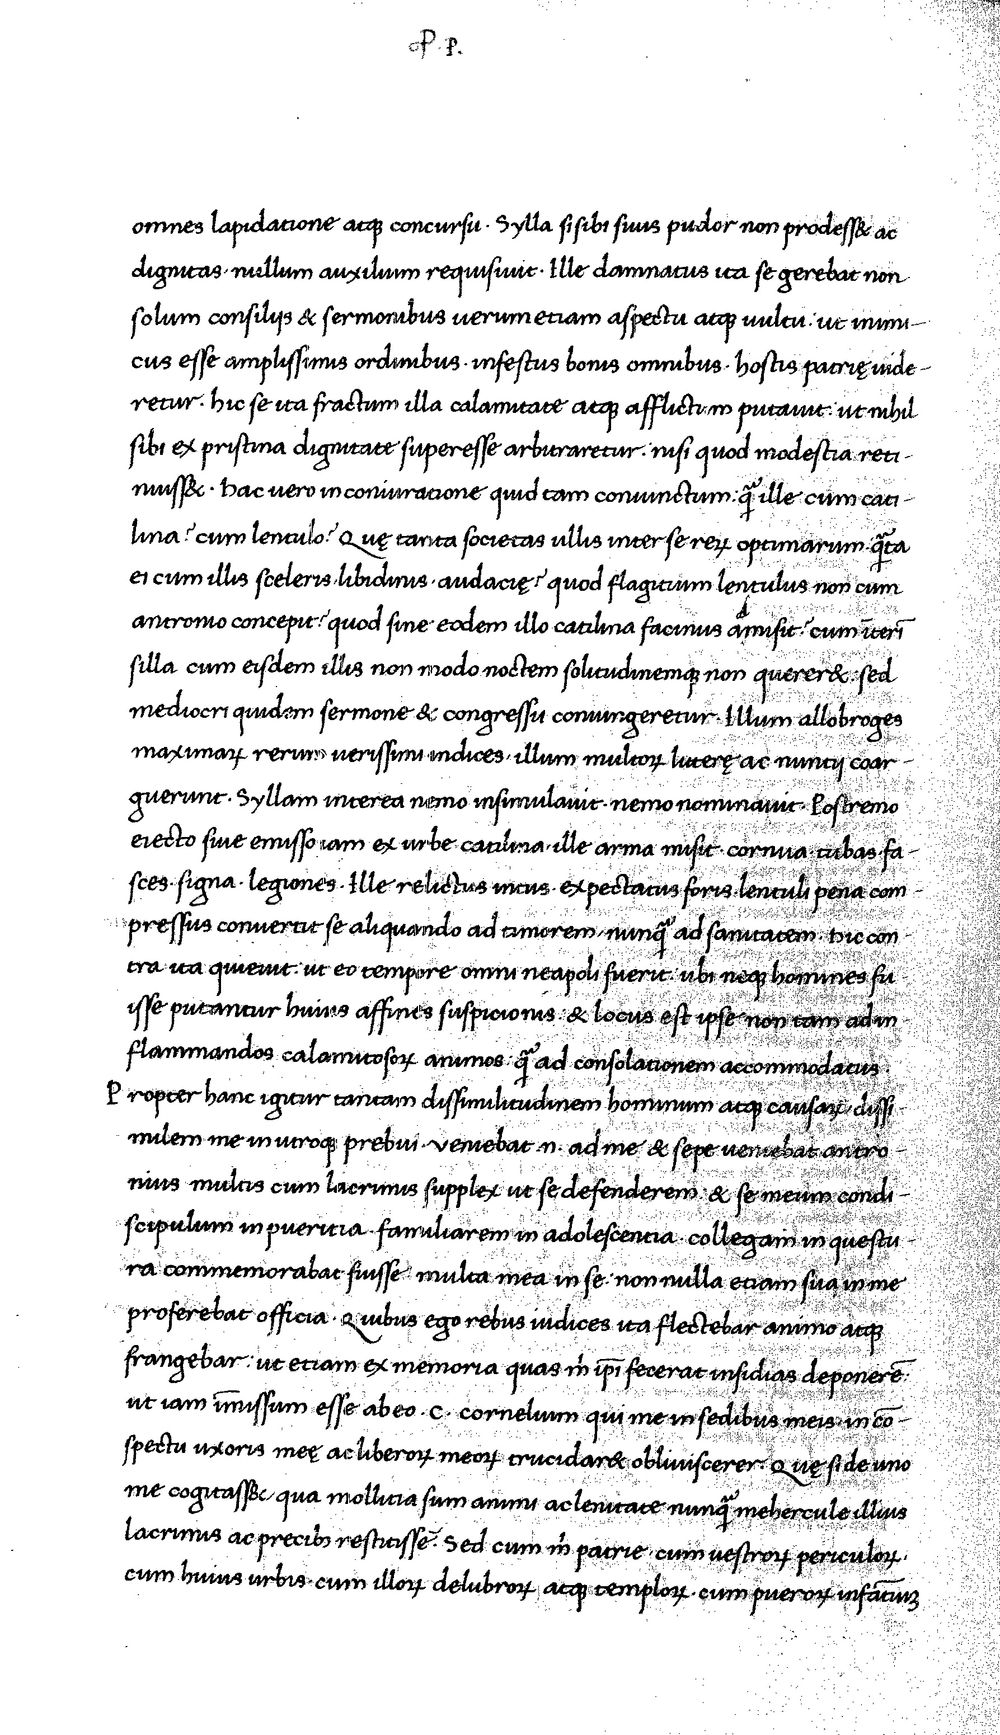 P. P.
omnes lapidatione atqꝫ concursu. Sylla si sibi suus pudor non prodess& ac
dignitas. nullum auxilium requisiuit. Ille damnatus ita se gerebat non
solum consilijs & sermonibus uerum etiam aspectu atqꝫ uultu: ut inimi-
cus esse amplissimis ordinibus. infestus bonis omnibus. hostis patrię uide-
retur. hic se ita fractum illa calamitate atqꝫ afflictum putauit: ut nihil
sibi ex pristina dignitate superesse arbitraretur: nisi quod modestia reti-
nuiss&. hac uero in coniuratione quid tam coniunctum: q̃ ille cum cati-
lina? cum lentulo? Quę tanta societas ullis inter se reꝝ optimarum q̃ta
ei cum illis sceleris. libidinis. audacię? quod flagitium lentulus non cum
antronio concepit? quod sine eodem illo catilina facinus admisit? cum īterī
silla cum eisdem illis non modo noctem solitudinemqꝫ non querer&. sed
mediocri quidem sermone & congressu coniungeretur. Illum allobroges
maximaꝝ rerum uerissimi indices. illum multoꝝ litterę ac nuntij coar-
guerunt. Syllam interea nemo insimulauit. nemo nominauit. Postremo
eiecto siue emisso iam ex urbe catilina. ille arma misit. cornua. tubas. fa-
sces. signa. legiones. Ille relictus intus. expectatus foris. lentuli pena com-
pressus conuertit se aliquando ad timorem. nunq̃ ad sanitatem. hic con-
tra ita quieuit: ut eo tempore omni neapoli fuerit: ubi neqꝫ homines fu-
isse putantur huius affines suspicionis: & locus est ipse non tam ad in-
flammandos calamitosoꝝ animos: q̃ ad consolationem accommodatus.
Propter hanc igitur tantam dissimilitudinem hominum atqꝫ causaꝝ dissi-
milem me in utroqꝫ prebui. veniebat .n. ad me & sepe ueniebat antro-
nius multis cum lacrimis supplex ut se defenderem: & se meum condi-
scipulum in pueritia. familiarem in adolescentia. collegam in questu-
ra commemorabat fuisse. multa mea in se. non nulla etiam sua in me
proferebat officia. Quibus ego rebus iudices ita flectebar animo atqꝫ
frangebar: ut etiam ex memoria quas m̄ ip̄i fecerat insidias deponerē:
ut iam īmissum esse ab eo .C. cornelium qui me in sedibus meis. in cō-
spectu uxoris meę ac liberoꝝ meoꝝ trucidar& obliuiscerer. Quę si de uno
me cogitass&. qua mollitia sum animi ac lenitate nunq̃ mehercule illius
lacrimis ac precibꝫ restitissē. Sed cum m̄ patrie. cum uestroꝝ periculoꝝ.
cum huius urbis. cum illoꝝ delubroꝝ atqꝫ temploꝝ. cum pueroꝝ infātiuꝫ